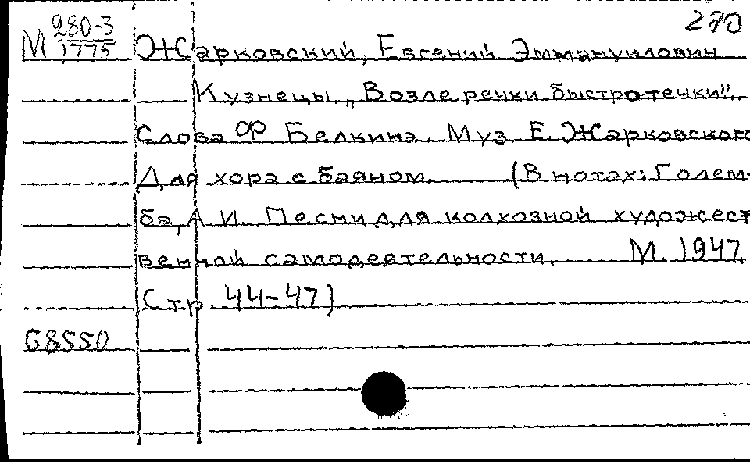 270
М 280-3
1775
Жарковский, Евгений Эммануилович
Кузнецы. „Возле речки быстротечки".
Слова Ф Белкина. Муз Е. Жарковского
Для хора с баяном. (В нотах: Голем-
ба, А И. Песни для колхозной художест
венной самодеятельности. М. 1947
Стр 44-47)
G8550